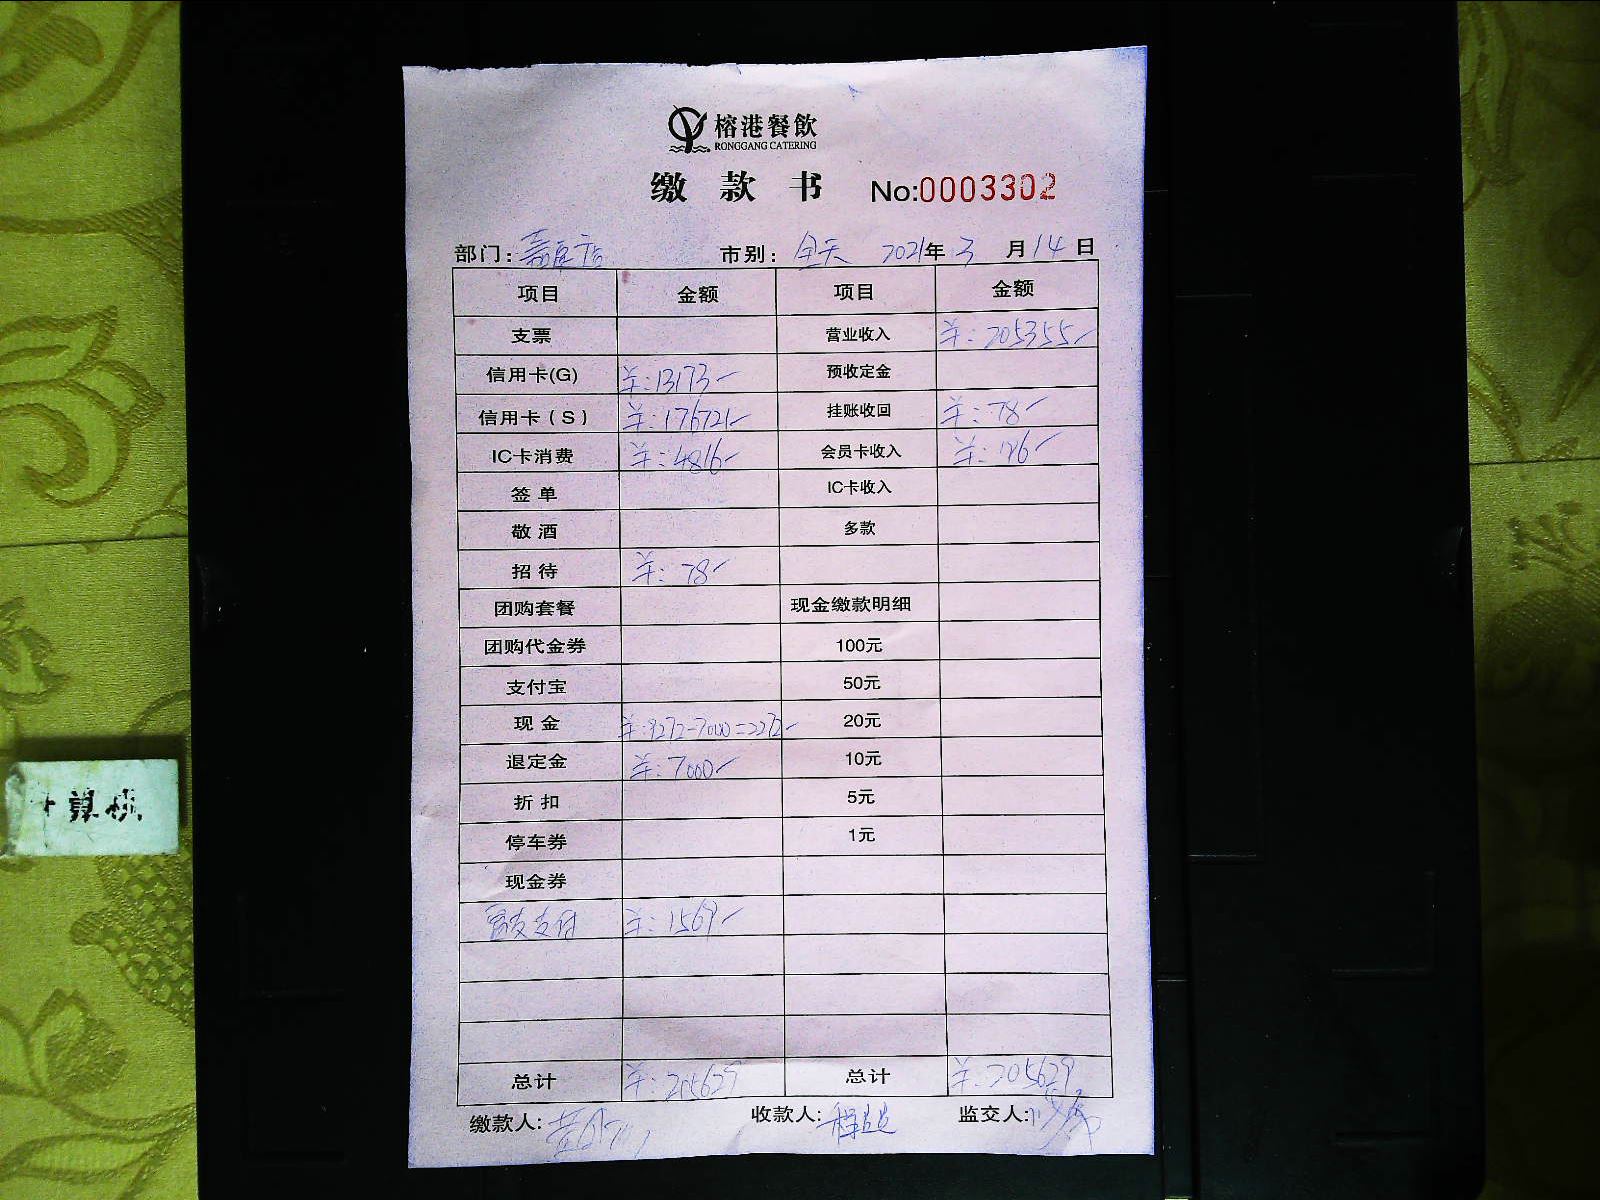 榕港餐飲
RONGGANG CATERING
缴款书 No:0003302
部门: 市别: 全天 2021年3月14日
项目 金额 项目 金额
支票 营业收入 ¥:205355
信用卡(G) ¥:13173 预收定金
信用卡(S) ¥:176721 挂账收回 ¥:78
IC卡消费 ¥:4816 会员卡收入 ¥:196
签单 IC卡收入
敬酒 多款
招待 ¥:78
团购套餐 现金缴款明细
团购代金券 100元
支付宝 50元
现金 ¥:9272-7000=2272 20元
退定金 ¥:7000 10元
折扣 5元
停车券 1元
现金券
富友支付 ¥:1569
总计 ¥:205629 总计 ¥:205629
缴款人: 收款人: 监交人: